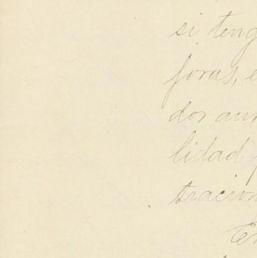 si teng
foras, e
dor aun
lidad
tracion